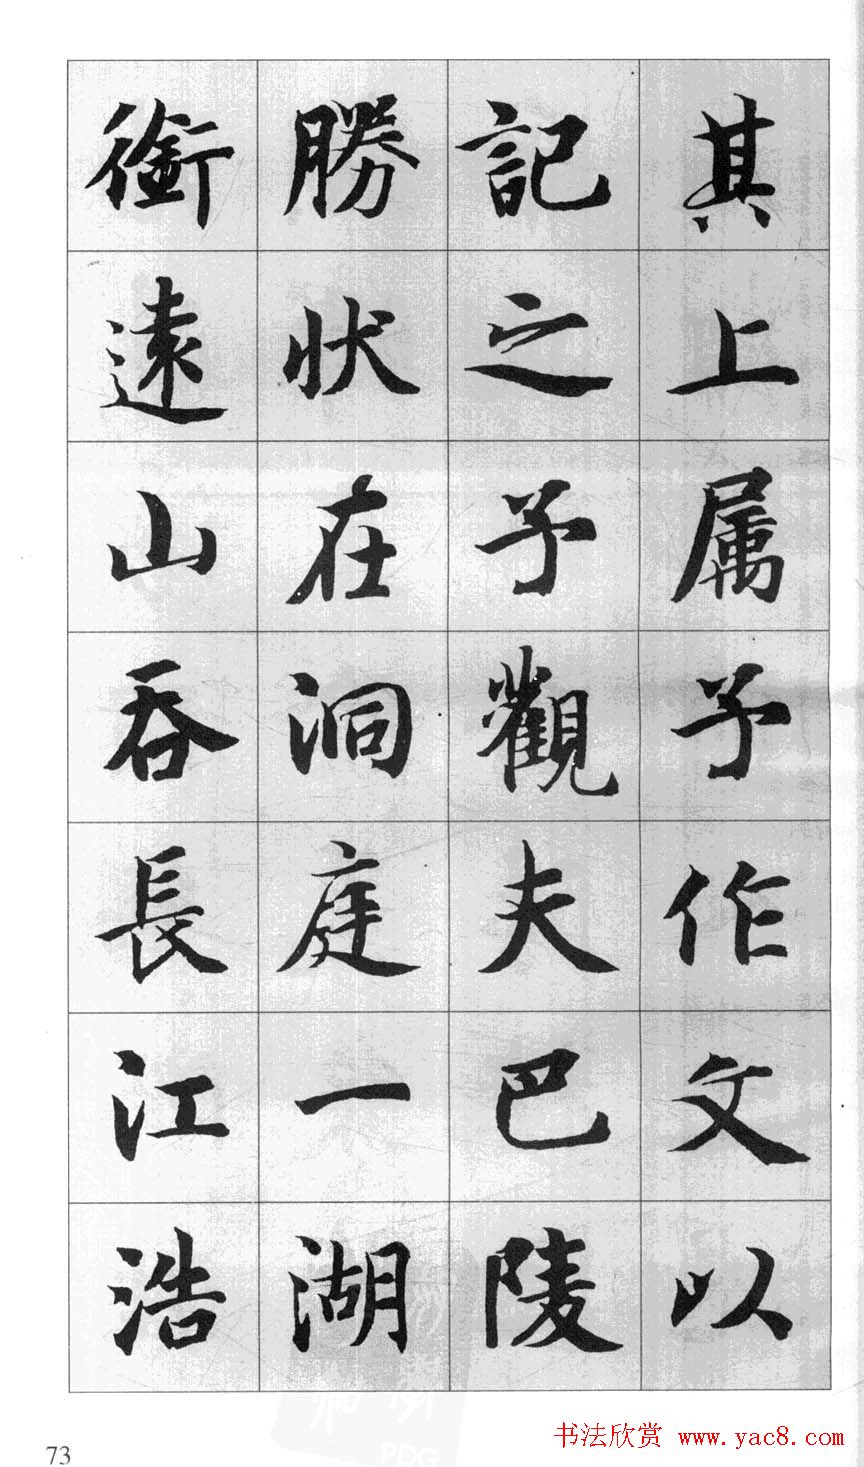 其上属予作文以
記之予觀夫巴陵
勝状在洞庭一湖
銜遠山吞長江浩
73
书法欣赏 www.yac8.com